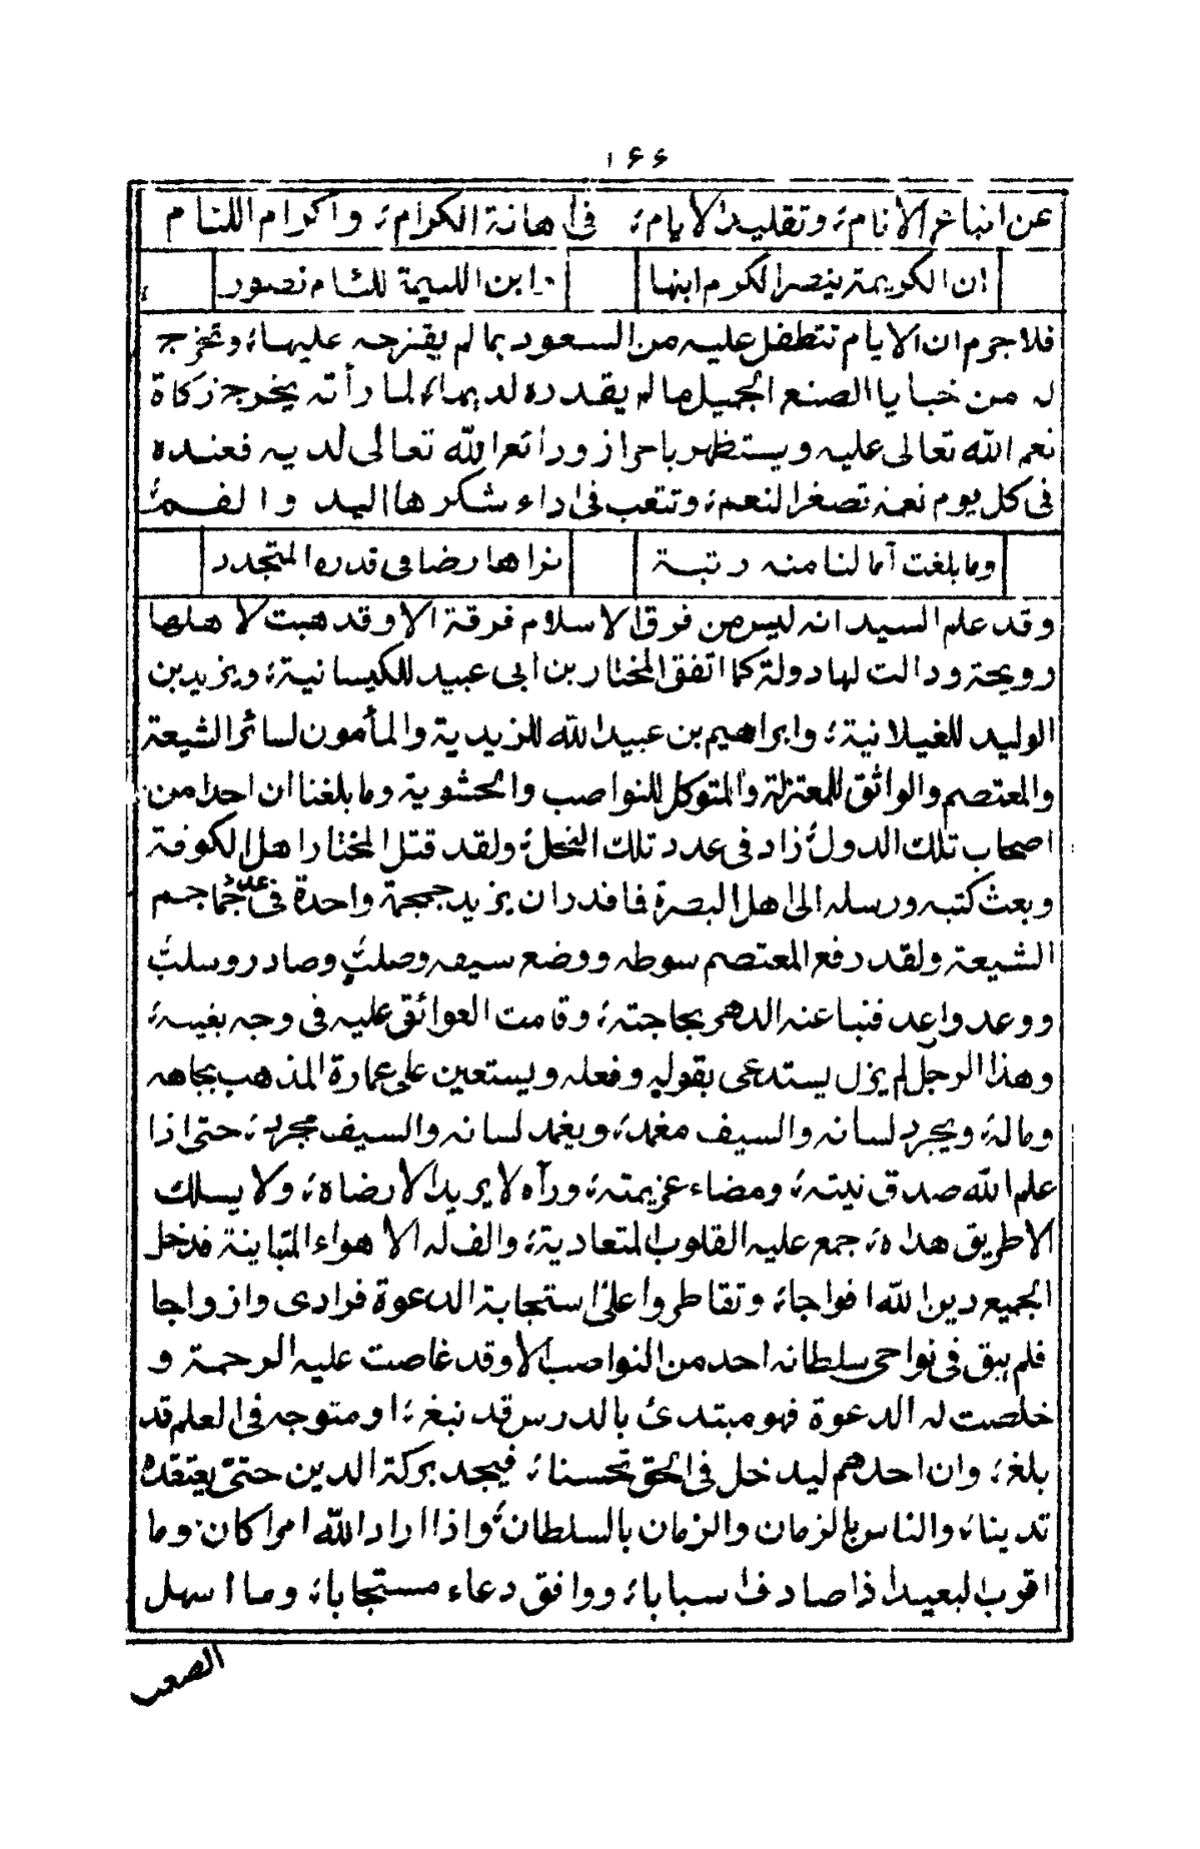 ١٦٦
عن اتباع الانام، وتقليد الايام، فى اهانة الكرام، واكرام اللئام
ان الكريمة ينصر الكرم ابنها وابن اللئيمة للئام نصور
فلا جرم ان الايام تتطفل عليه من السعود بما لم يقترحه عليها، وتخرج
له من خبايا الصنع الجميل ما لم يقدره لديها، لما رأته يخرج زكاة
نعم الله تعالى عليه ويستظهر باحراز ودائع الله تعالى لديه فعنده
فى كل يوم نعمة تصغر النعم، وتتعب فى اداء شكرها اليد والفم
وما بلغت آمالنا منه رتبة نراها رضا فى قدره المتجدد
وقد علم السيد انه ليس من فرق الاسلام فرقة الا وقد هبت لاهلها
رويحة ودالت لها دولة كما اتفق المختار بن ابى عبيد للكيسانية، ويزيد بن
الوليد للغيلانية، وابراهيم بن عبد الله للزيدية والمأمون لسائر الشيعة
والمعتصم والواثق للمعتزلة والمتوكل للنواصب والحشوية وما بلغنا ان احدا من
اصحاب تلك الدول زاد فى عدد تلك النحل، ولقد قتل المختار اهل الكوفة
وبعث كتبه ورسله الى اهل البصرة فما قدر ان يزيد جمجمة واحدة فى عدد جماجم
الشيعة ولقد رفع المعتصم سوطه ووضع سيفه وصلت وصادر وسلب
ووعد واعد فنبا عنه الدهر بحاجته، وقامت العوائق عليه فى وجه بغيه،
وهذا الرجل لم يزل يستدعى بقوله وفعله ويستعين على عمارة المذهب بجاهه
وماله، ويجرد لسانه والسيف مغمد، ويغمد لسانه والسيف مجرد، حتى اذا
علم الله صدق نيته، ومضاء عزيمته، ورآه لا يريد الا رضاه، ولا يسلك
الا طريق هداه، جمع عليه القلوب المتعادية، والف له الاهواء المتباينة فدخل
الجميع دين الله افواجا، وتقاطروا على استجابة الدعوة فرادى وازواجا
فلم يبق فى نواحى سلطانه احد من النواصب الا وقد غاصت عليه الرحمة و
خلصت له الدعوة فهو مبتدئ بالدرس قد نبغ، او متوجه فى العلم قد
بلغ، وان احدهم ليدخل فى الحق تحسنا، فيجد بركة الدين حتى يعتقده
تدينا، والناس بالزمان والزمان بالسلطان، واذا اراد الله امرا كان، وما
اقرب البعيد اذا صادف اسبابا، ووافق دعاء مستجابا، وما اسهل
الصعب